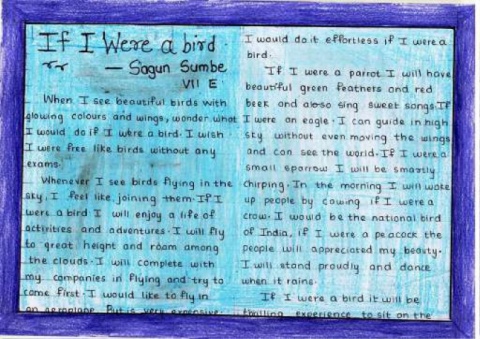 If I Were a bird.
— Sagun Sumbe
VII E
When I see beautiful birds with
glowing colours and wings, wonder what
I would do if I were a bird. I wish
I were free like birds without any
exams.
Whenever I see birds flying in the
sky, I feel like joining them. If I
were a bird I will enjoy a life of
activities and adventures. I will fly
to great height and roam among
the clouds. I will complete with
my companies in flying and try to
come first. I would like to fly in
an aeroplane. But is very expensive.
I would do it effortless if I were a
bird.
If I were a parrot I will have
beautiful green feathers and red
beek and also sing sweet songs. If
I were an eagle. I can guide in high
sky without even moving the wings
and can see the world. If I were a
small sparrow I will be smartly
chirping. In the morning I will wake
up people by cawing if I were a
crow. I would be the national bird
of India, if I were a peacock the
people will appreciated my beauty.
I will stand proudly and dance
when it rains.
If I were a bird it will be
thrilling experience to sit on the